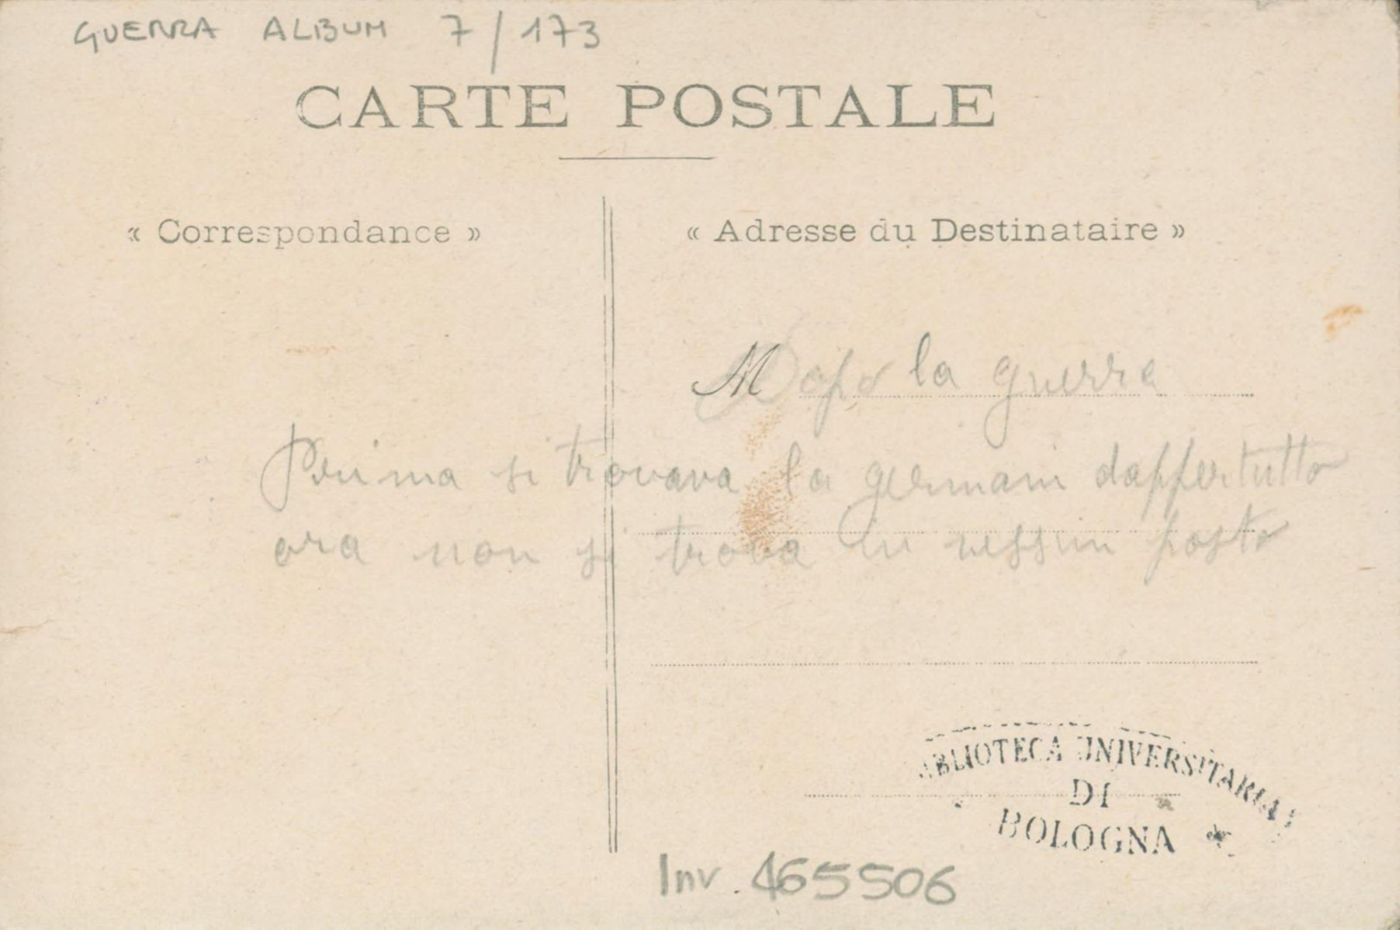 GUERRA ALBUM 7/173
CARTE POSTALE
« Correspondance »
« Adresse du Destinataire »
M
Dopo la guerra
Prima si trovava la germani dappertutto
ora non si trova in nessun posto
BIBLIOTECA UNIVERSITARIA
DI
BOLOGNA
Inv. 465506